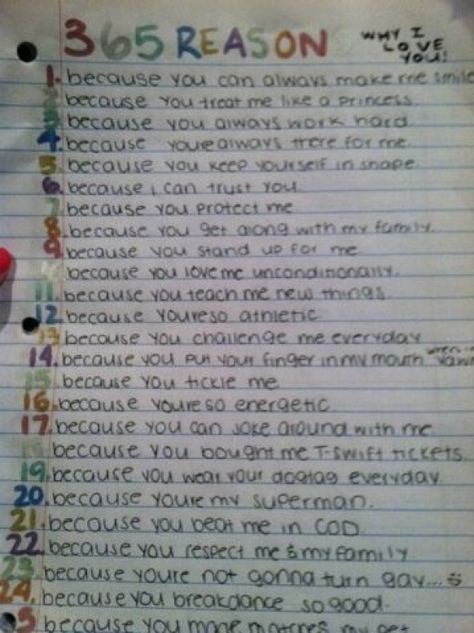 365 REASON WHY I
LOVE
YOU!
1. because you can always make me smile
2 because you treat me like a princess.
3 because you always work hard
4. because youre always there for me.
5. because you keep yourself in shape
6. because i can trust you
7 because you protect me
8. because you get along with my family.
9. because you stand up for me
10 because you love me unconditionally.
11. because you teach me new things.
12 because youre so athletic.
13 because you challenge me everyday
14. because you put your finger in my mouth when i yawn
15 because you tickle me
16. because youre so energetic
17. because you can joke around with me
18 because you bought me T-swift tickets.
19. because you wear your dogtag everyday.
20. because youre my superman.
21. because you beat me in COD.
22. because you respect me & my family
23. because youre not gonna turn gay...
24. because you breakdance so good.
25 because you made me